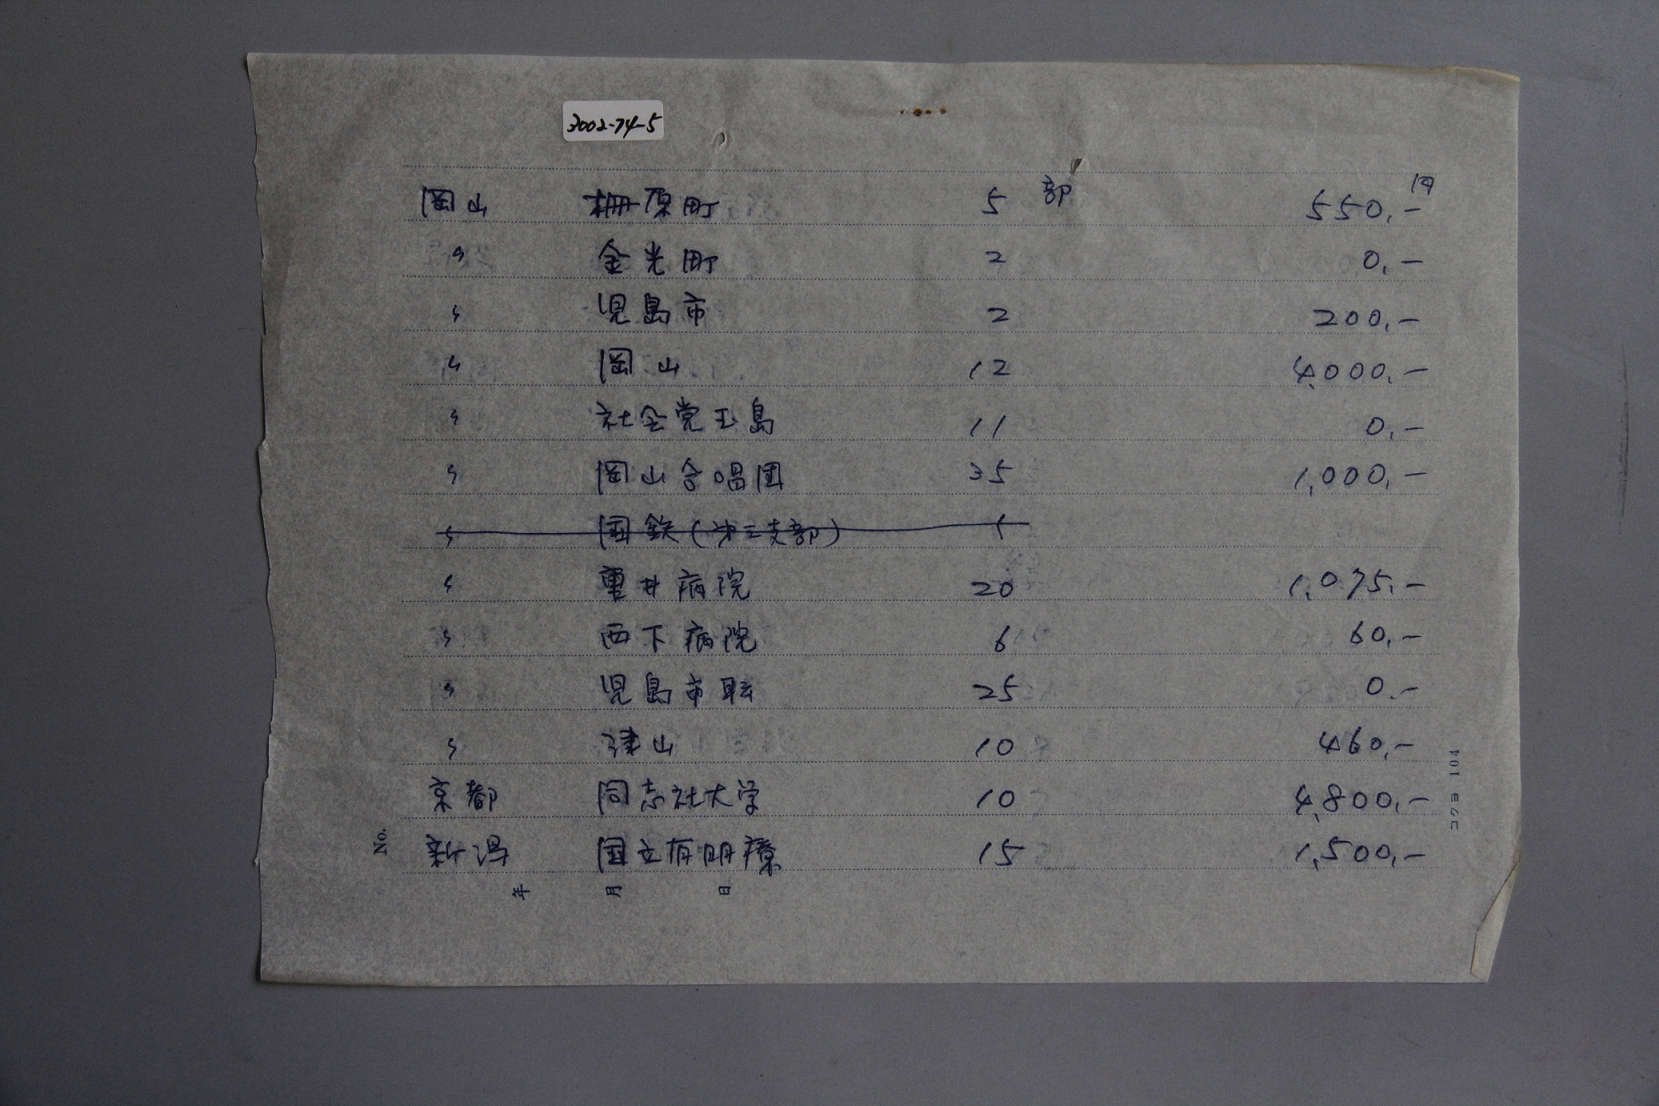 3002-74-5
岡山 柵原町 5部 550.-円
〃 金光町 2 0.-
〃 児島市 2 200.-
〃 岡山 12 4,000.-
〃 社会党玉島 11 0.-
〃 岡山合唱団 35 1,000.-
〃 国鉄(第三支部) 1
〃 重井病院 20 1,075.-
〃 西下病院 6 60.-
〃 児島市職 25 0.-
〃 津山 10 460.-
京都 同志社大学 10 4,800.-
新潟 国立有明療 15 1,500.-
No.
年 月 日